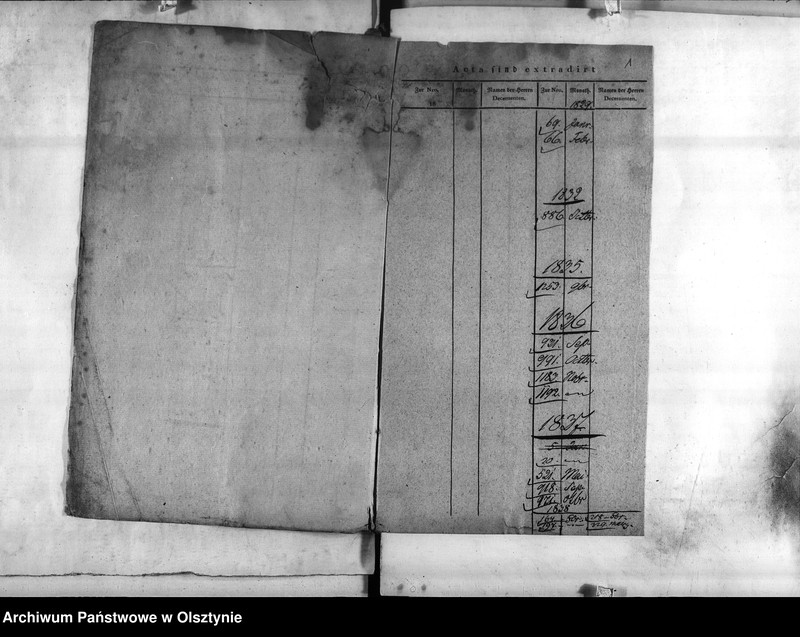 1
Acta sind extradirt
Zur Nro. Monath. Namen der Herren Decernenten. Zur Nro. Monath. Namen der Herren Decernenten.
1829.
69. Janr.
66. Febr.
1832
886 Octbr.
1835.
1253. 9br.
1836
931. Sept.
991. Octbr.
1183. Novbr.
1192.
1837
5. Jan
20.
531. Mai
918. Sep
971. Octbr
1838
Archiwum Państwowe w Olsztynie